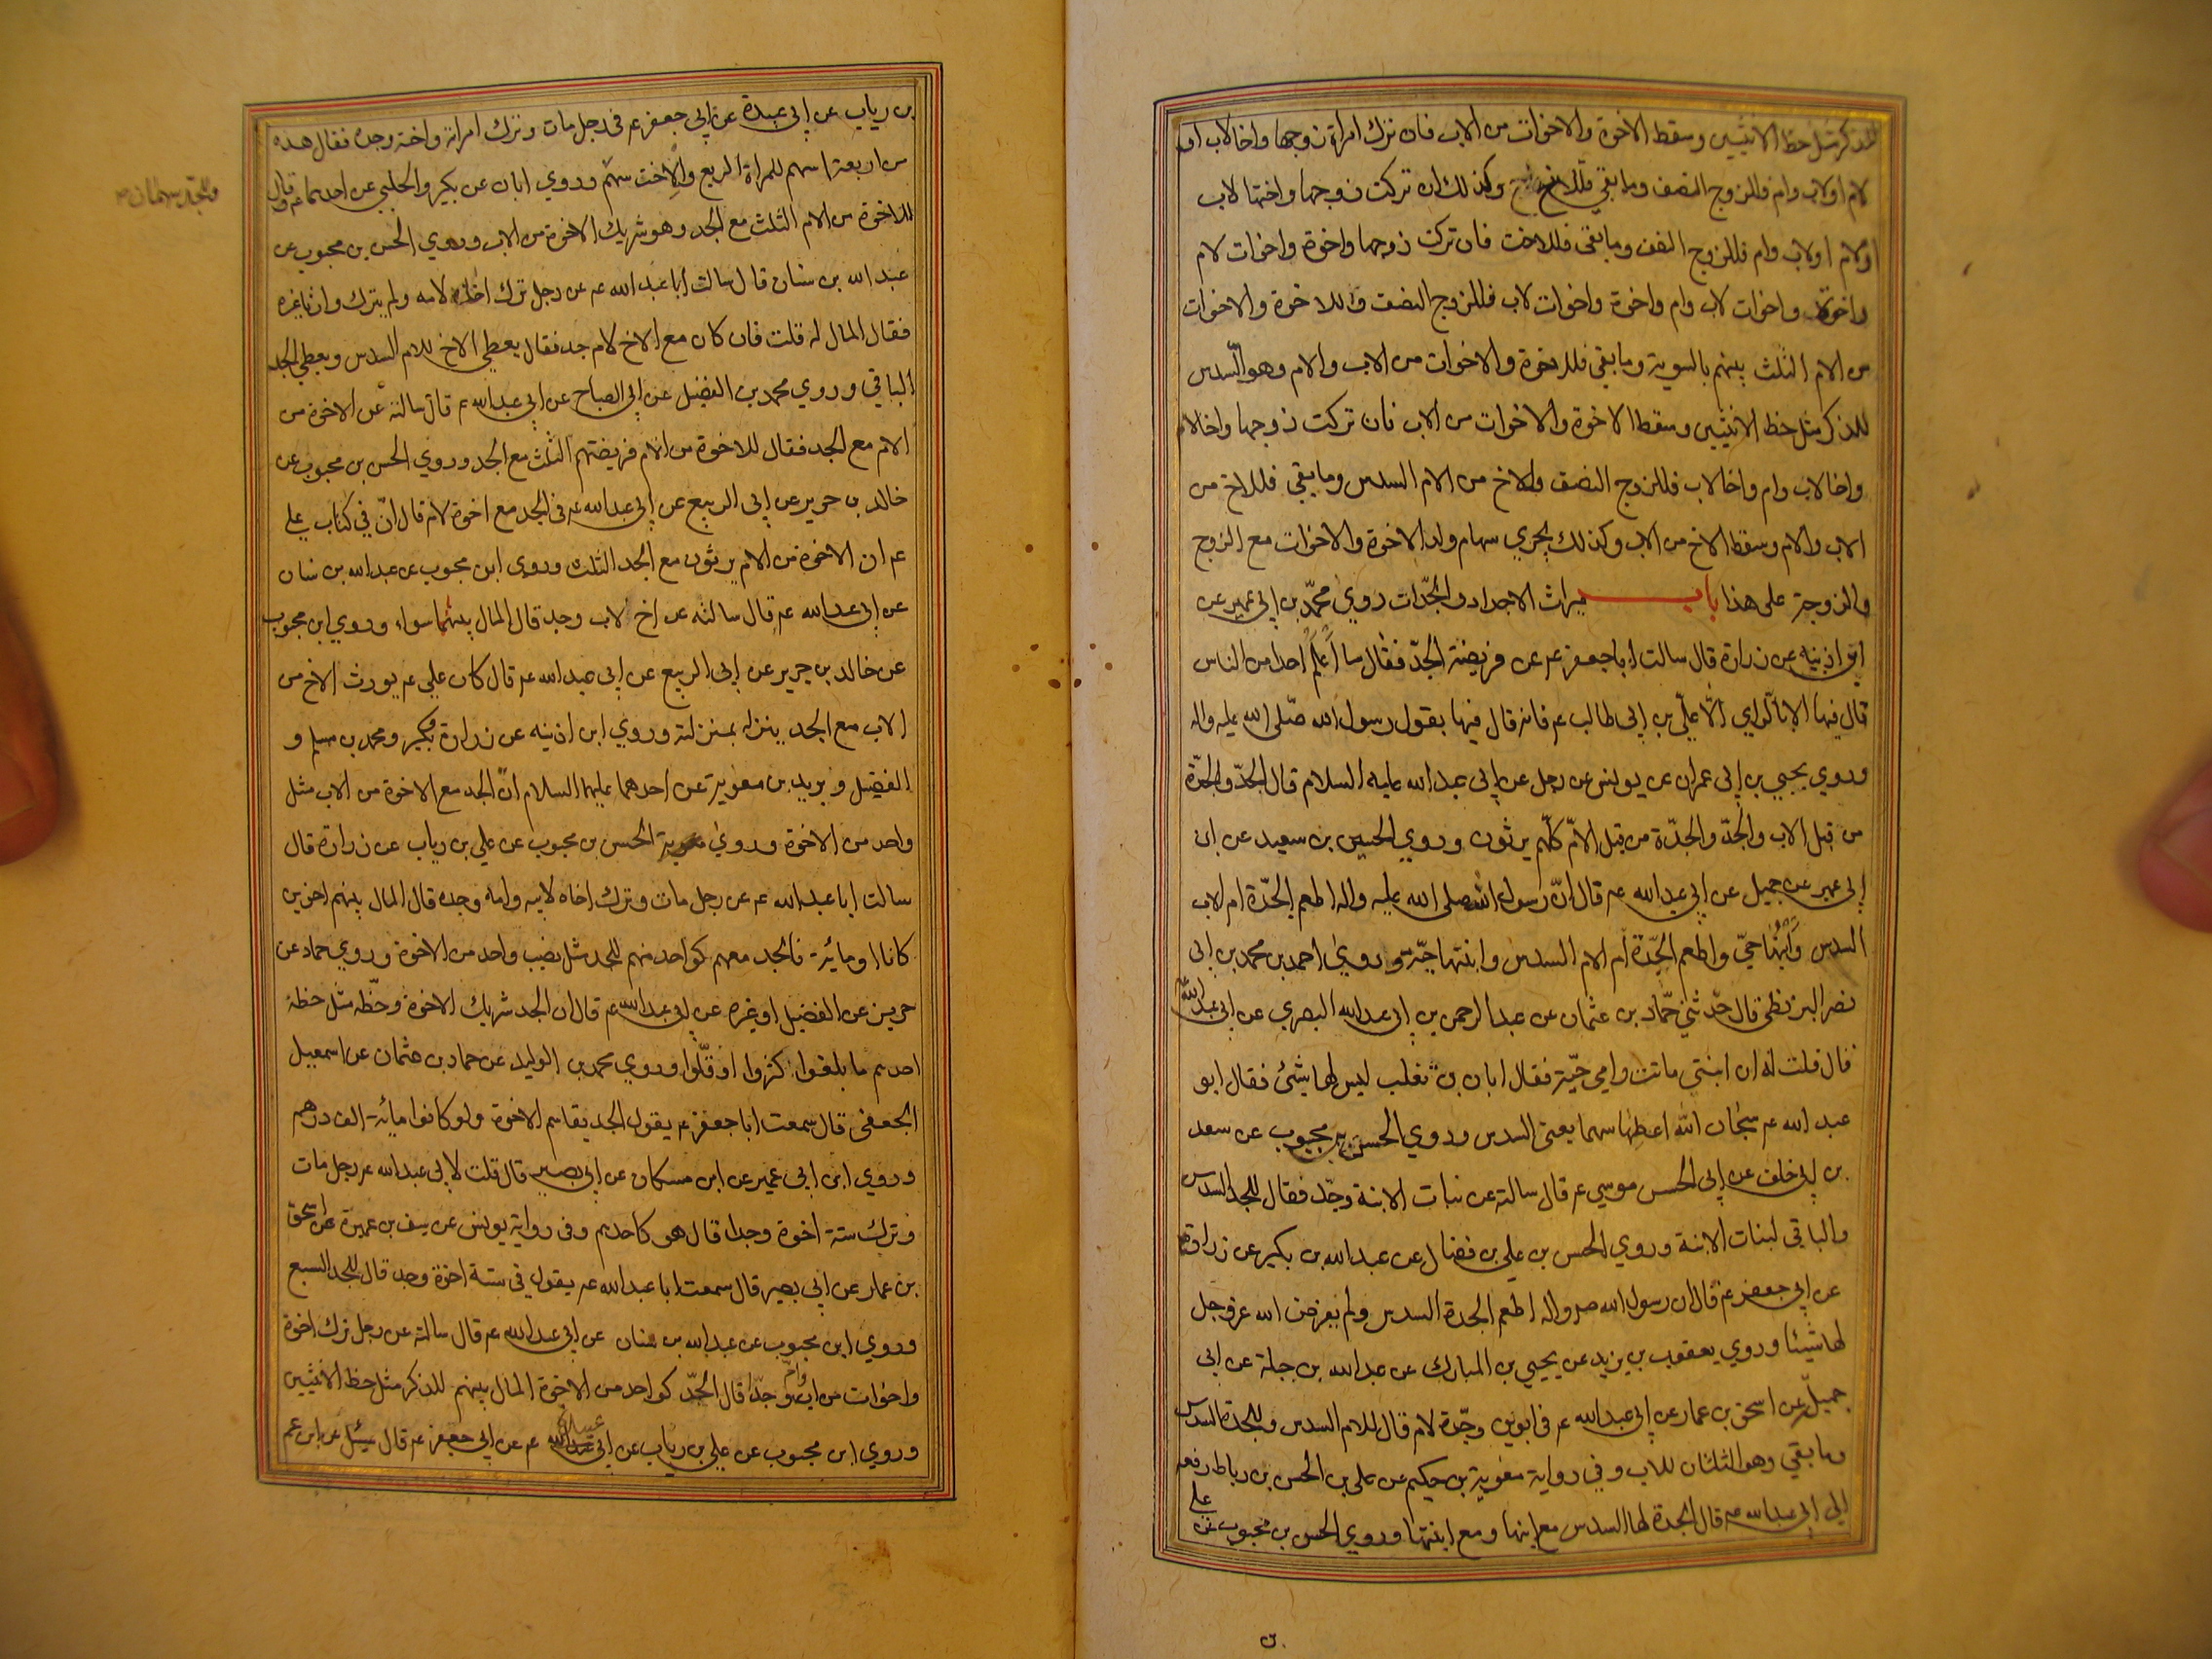 للذكر مثل حظ الانثيين وسقط الاخوة والاخوات من الاب فان ترك امراة زوجها واخا لاب او
لام او لاب وام فللزوج النصف وما بقي فللاخ وكذلك ان تركت زوجها واختها لاب
او لام او لاب وام فللزوج النصف وما بقى فللاخت فان تركت زوجها واخوة واخوات لام
واخوة واخوات لاب وام واخوة واخوات لاب فللزوج النصف وللاخوة والاخوات
من الام الثلث بينهم بالسوية وما بقي فللاخوة والاخوات من الاب والام وهو السدس
للذكر مثل حظ الانثيين وسقط الاخوة والاخوات من الاب فان تركت زوجها واخا لام
واخا لاب وام واخا لاب فللزوج النصف وللاخ من الام السدس وما بقي فللاخ من
الاب والام وسقط الاخ من الاب وكذلك يجري سهام ولد الاخوة والاخوات مع الزوج
والزوجة على هذا باب ميراث الاجداد والجدّات روي محمّد بن ابي عمير عن
ابن اذينه عن زرارة قال سالت ابا جعفر عم عن فريضة الجدّ فقال ما اَعلَمُ احدا من الناس
قال فيها الا بالراي الّا علي بن ابي طالب عم فانه قال فيها بقول رسول الله صلى الله عليه واله
وروي يحيي بن ابي عمران عن يونس عن رجل عن ابي عبد الله عليه السلام قال الجدّ والجدّة
من قبل الاب والجدّ والجدّة من قبل الامّ كلّهم يرثون وروي الحسين بن سعيد عن ابن
ابي عمير عن جميل عن ابي عبد الله عم قال انّ رسول الله صلى الله عليه واله اطعم الجدّة ام الاب
السدس وَابْنُها حيّ واطعم الجدّة ام الام السدس وابنتها حيّة وروي احمد بن محمد بن ابي
نصر البزنطى قال حدّثني حمّاد بن عثمان عن عبد الرحمن بن ابي عبد الله البصري عن ابي عبد الله
قال قلت له ان ابنتي ماتت وامي حيّة فقال ابان بن تغلب ليس لها شئ فقال ابو
عبد الله عم سبحان الله اعطها سهما يعنى السدس وروي الحسن بن محبوب عن سعد
بن ابي خلف عن ابي الحسن موسي عم قال سالته عن بنات الابنة وجدّ فقال للجد السدس
والباقي لبنات الابنة وروي الحسن بن علي بن فضال عن عبد الله بن بكير عن زرارة
عن ابي جعفر عم قال ان رسول الله ص واله اطعم الجدة السدس ولم يفرض الله عز وجل
لها شيئا وروي يعقوب بن يزيد عن يحيي بن المبارك عن عبد الله بن جبلة عن ابي
جميلة عن اسحق بن عمار عن ابي عبد الله عم في ابوين وجدّة لام قال للام السدس وللجدة السدس
وما بقي وهو الثلثان للاب وفي رواية معوية بن حكيم عن علي بن الحسن بن رباط رفعه
الى ابي عبد الله عم قال الجدة لها السدس مع ابنها ومع ابنتها وروي الحسن بن محبوب عن علي
بن رياب عن ابي عبيدة عن ابي جعفر عم في رجل مات وترك امراته واخته وجده فقال هذه
من اربعة اسهم للمراة الربع وللاخت سهم وروي ابان عن بكير والحلبي عن احدهما عم قال
وللجدّ سهمان
للاخوة من الام الثلث مع الجد وهو شريك الاخوة من الاب وروي الحسن بن محبوب عن
عبد الله بن سنان قال سالت ابا عبد الله عم عن رجل ترك اخاه لامه ولم يترك وارثا غيره
فقال المال له قلت فان كان مع الاخ لام جد فقال يعطي الاخ للام السدس ويعطي الجد
الباقي وروي محمد بن الفضيل عن ابي الصباح عن ابي عبد الله عم قال سالته عن الاخوة من
الام مع الجد فقال للاخوة من الام فريضتهم الثلث مع الجد وروي الحسن بن محبوب عن
خالد بن جرير عن ابي الربيع عن ابي عبد الله عم في الجد مع اخوة لام قال انّ في كتاب علي
عم ان الاخوة من الام يرثون مع الجد الثلث وروي ابن محبوب عن عبد الله بن سنان
عن ابي عبد الله عم قال سالته عن اخ لاب وجد قال المال بينهما سواء وروي ابن محبوب
عن خالد بن جرير عن ابي الربيع عن ابي عبد الله عم قال كان علي عم يورث الاخ من
الاب مع الجد ينزله بمنزلته وروي ابن اذينه عن زرارة وبكير ومحمد بن مسلم و
الفضيل وبريد بن معوية عن احدهما عليهما السلام انّ الجد مع الاخوة من الاب مثل
واحد من الاخوة وروي الحسن بن محبوب عن علي بن رياب عن زرارة قال
سالت ابا عبد الله عم عن رجل مات وترك اخاه لابيه وامه وجده قال المال بينهم اخوين
كانا او مائة فالجد معهم كواحد منهم للجد مثل نصيب واحد من الاخوة وروي حماد عن
حريز عن الفضيل او غيره عن ابي عبد الله عم قال ان الجد شريك الاخوة وحظّه مثل حظ
احدهم ما بلغوا كثروا او قلّوا وروي محمد بن الوليد عن حماد بن عثمان عن اسمعيل
الجعفى قال سمعت ابا جعفر عم يقول الجد يقاسم الاخوة ولو كانوا مائة الف درهم
وروي ابن ابي عمير عن ابن مسكان عن ابي بصير قال قلت لابي عبد الله عم رجل مات
وترك ستة اخوة وجدا قال هو كاحدهم وفي رواية يونس عن سيف بن عميرة عن اسحق
بن عمار عن ابي بصير قال سمعت ابا عبد الله عم يقول في ستة اخوة وجد قال للجد السبع
وروي ابن محبوب عن عبد الله بن سنان عن ابي عبد الله عم قال سالته عن رجل ترك اخوة
واخوات من اب وام وجدّا قال الجدّ كواحد من الاخوة المال بينهم للذكر مثل حظ الانثيين
وروي ابن محبوب عن علي بن رياب عن ابي عم عن ابي جعفر عم قال سئل عن ابن عم